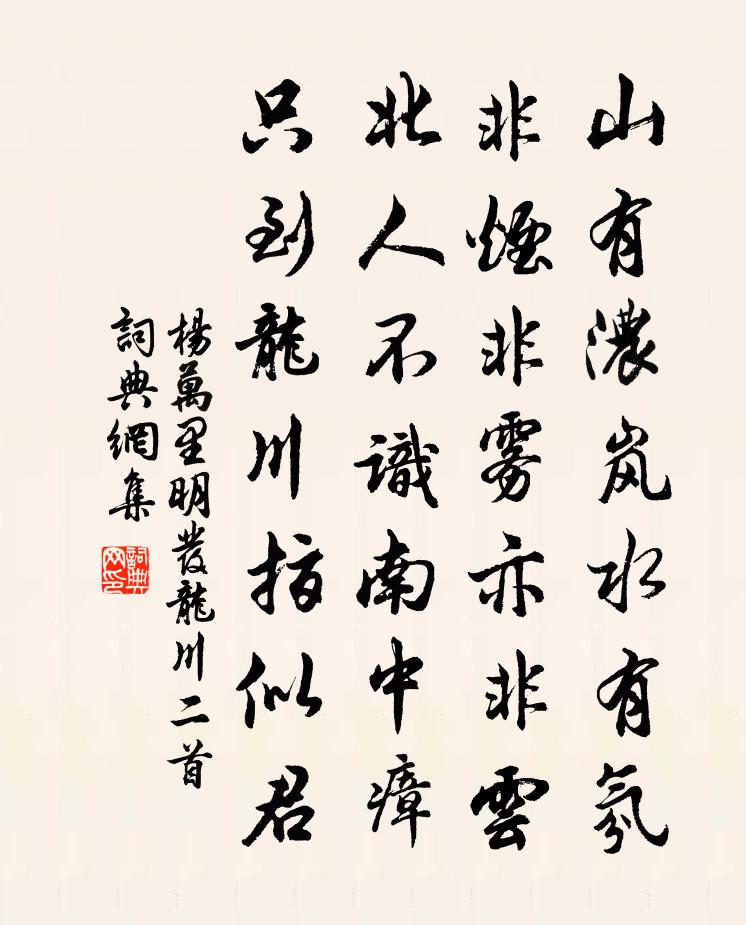 山有濃岚水有氛
非煙非雾亦非雲
北人不識南中瘴
只到龍川指似君
楊萬里明發龍川二首
詞典網集
詞典网印